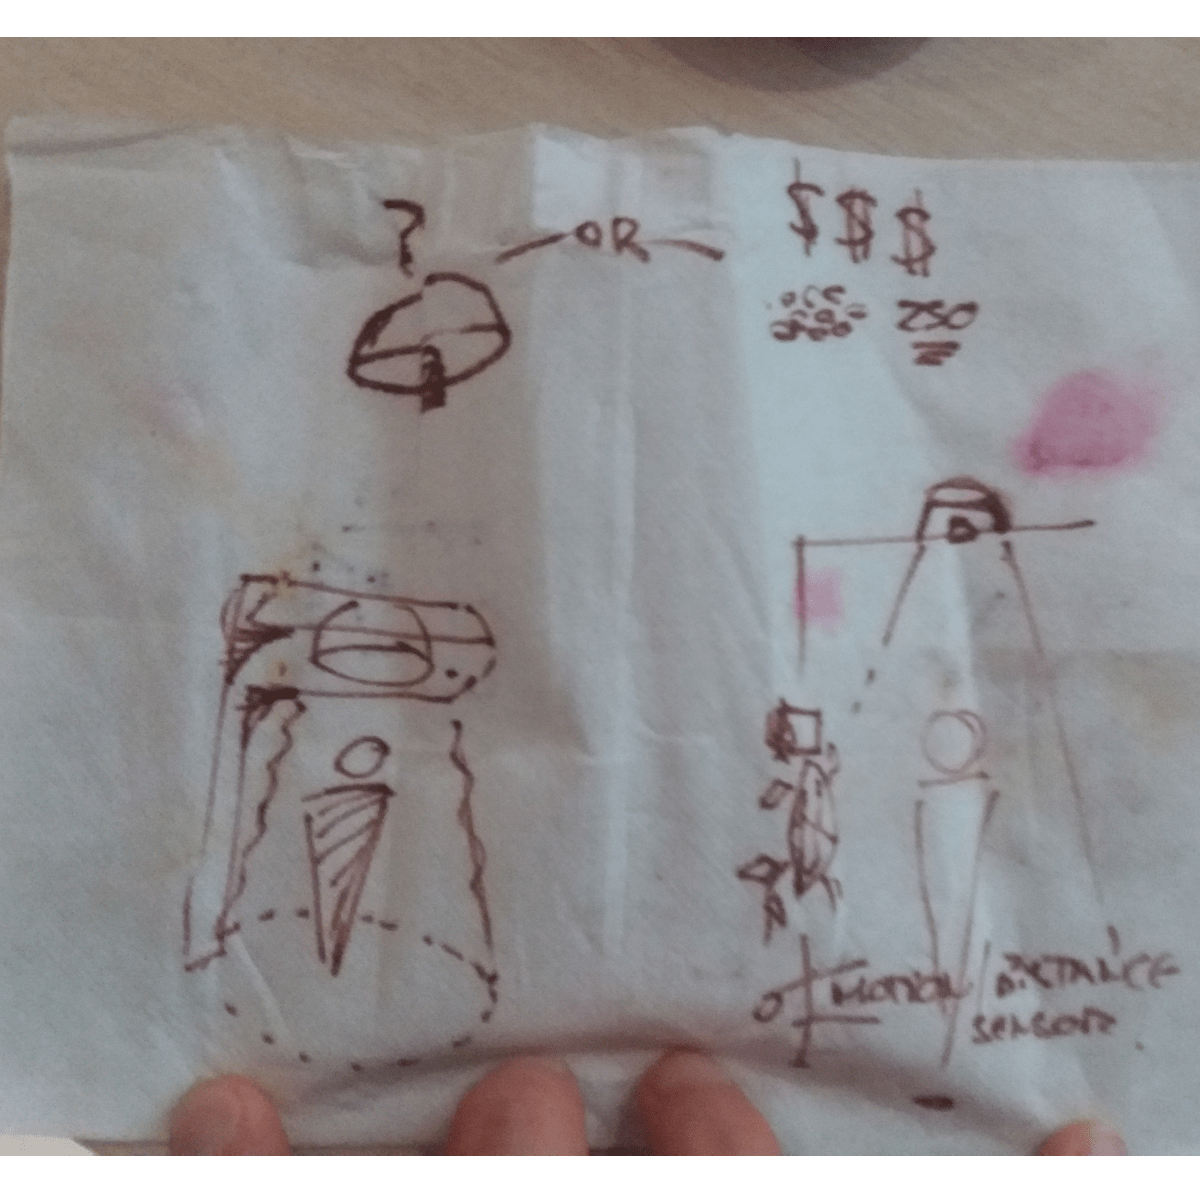 ?
OR
$ $ $
250
MOTION / DISTANCE
SENSOR